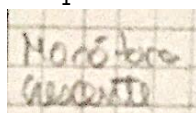 Monótona
crescente